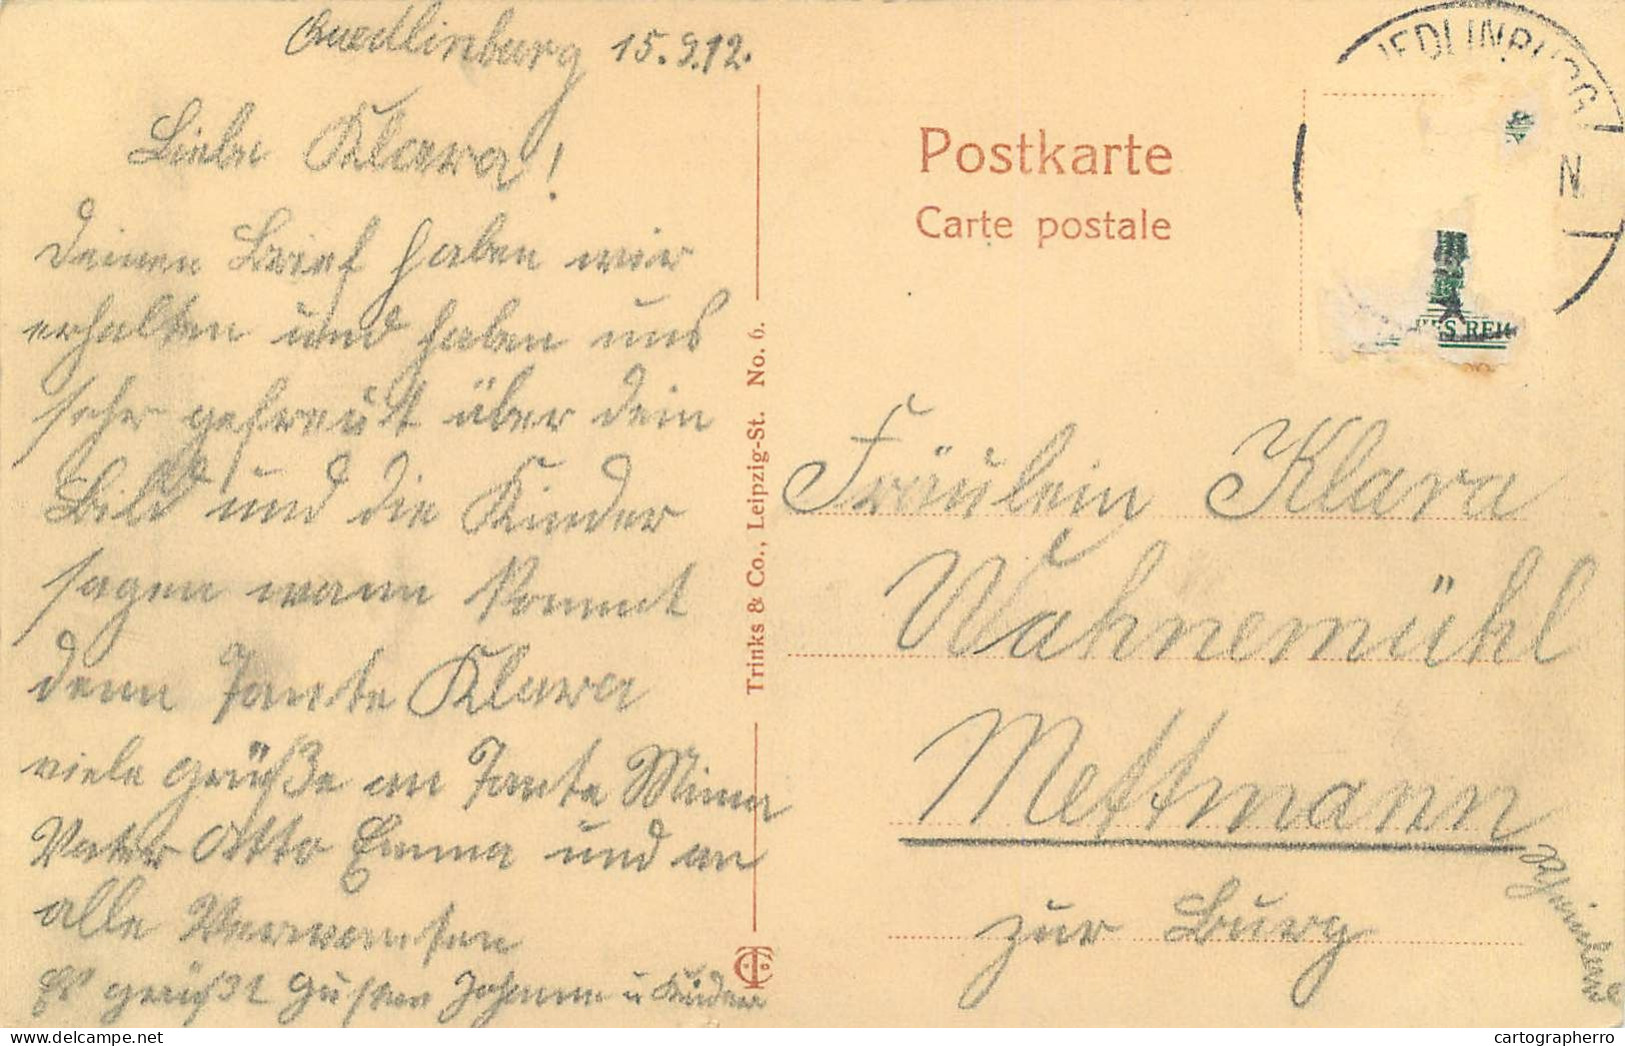 Quedlinburg 15.9.12.
Liebe Klara!
Deinen Brief haben wir
erhalten und haben uns
sehr gefreut über dein
Bild und die Kinder
sagen wann kommt
denn Tante Klara
viele grüße an Tante Minna
Vater Otto Emma und an
alle Verwanten
Es grüßt Gustav Johanna u Kinder
Trinks & Co., Leipzig-St. No. 6.
Postkarte
Carte postale
ES REI
N
Fräulein Klara
Wahnemühl
Mettmann
Rheinland
zur Burg
cartographerro